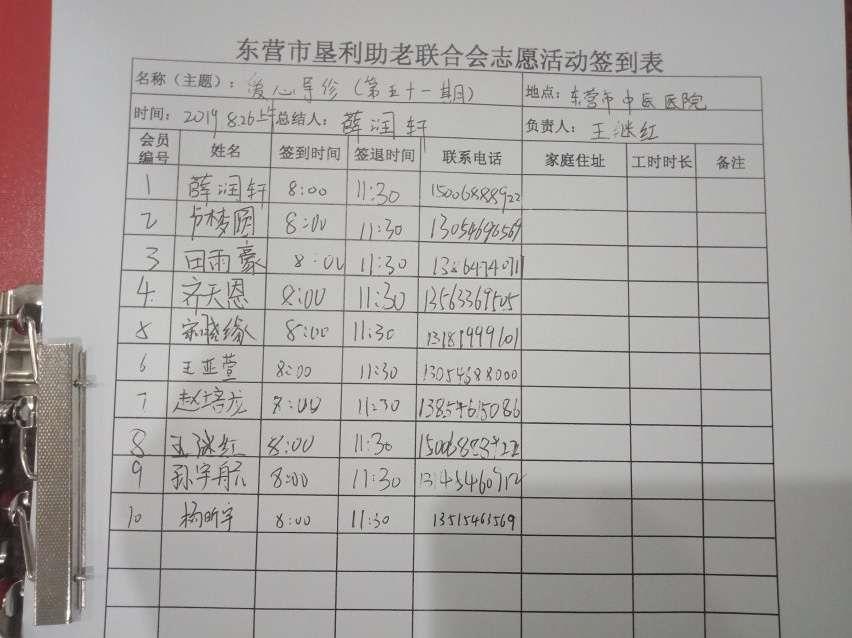 东营市垦利助老联合会志愿活动签到表
名称（主题）：爱心导诊（第五十一期） 地点：东营市中医医院
时间：2019 8.26上午 总结人：薛润轩 负责人：王继红
会员编号 姓名 签到时间 签退时间 联系电话 家庭住址 工时时长 备注
1 薛润轩 8:00 11:30 15006888922
2 卢梦圆 8:00 11:30 13054696569
3 田雨豪 8:00 11:30
4 齐天恩 8:00 11:30 13563369505
5 宋晓缘 8:00 11:30 13189999101
6 王亚萱 8:00 11:30 13054688000
7 赵培龙 8:00 11:30 13854615086
8 王继红 8:00 11:30
9 孙宇航 8:00 11:30
10 杨昕宇 8:00 11:30 13515463569